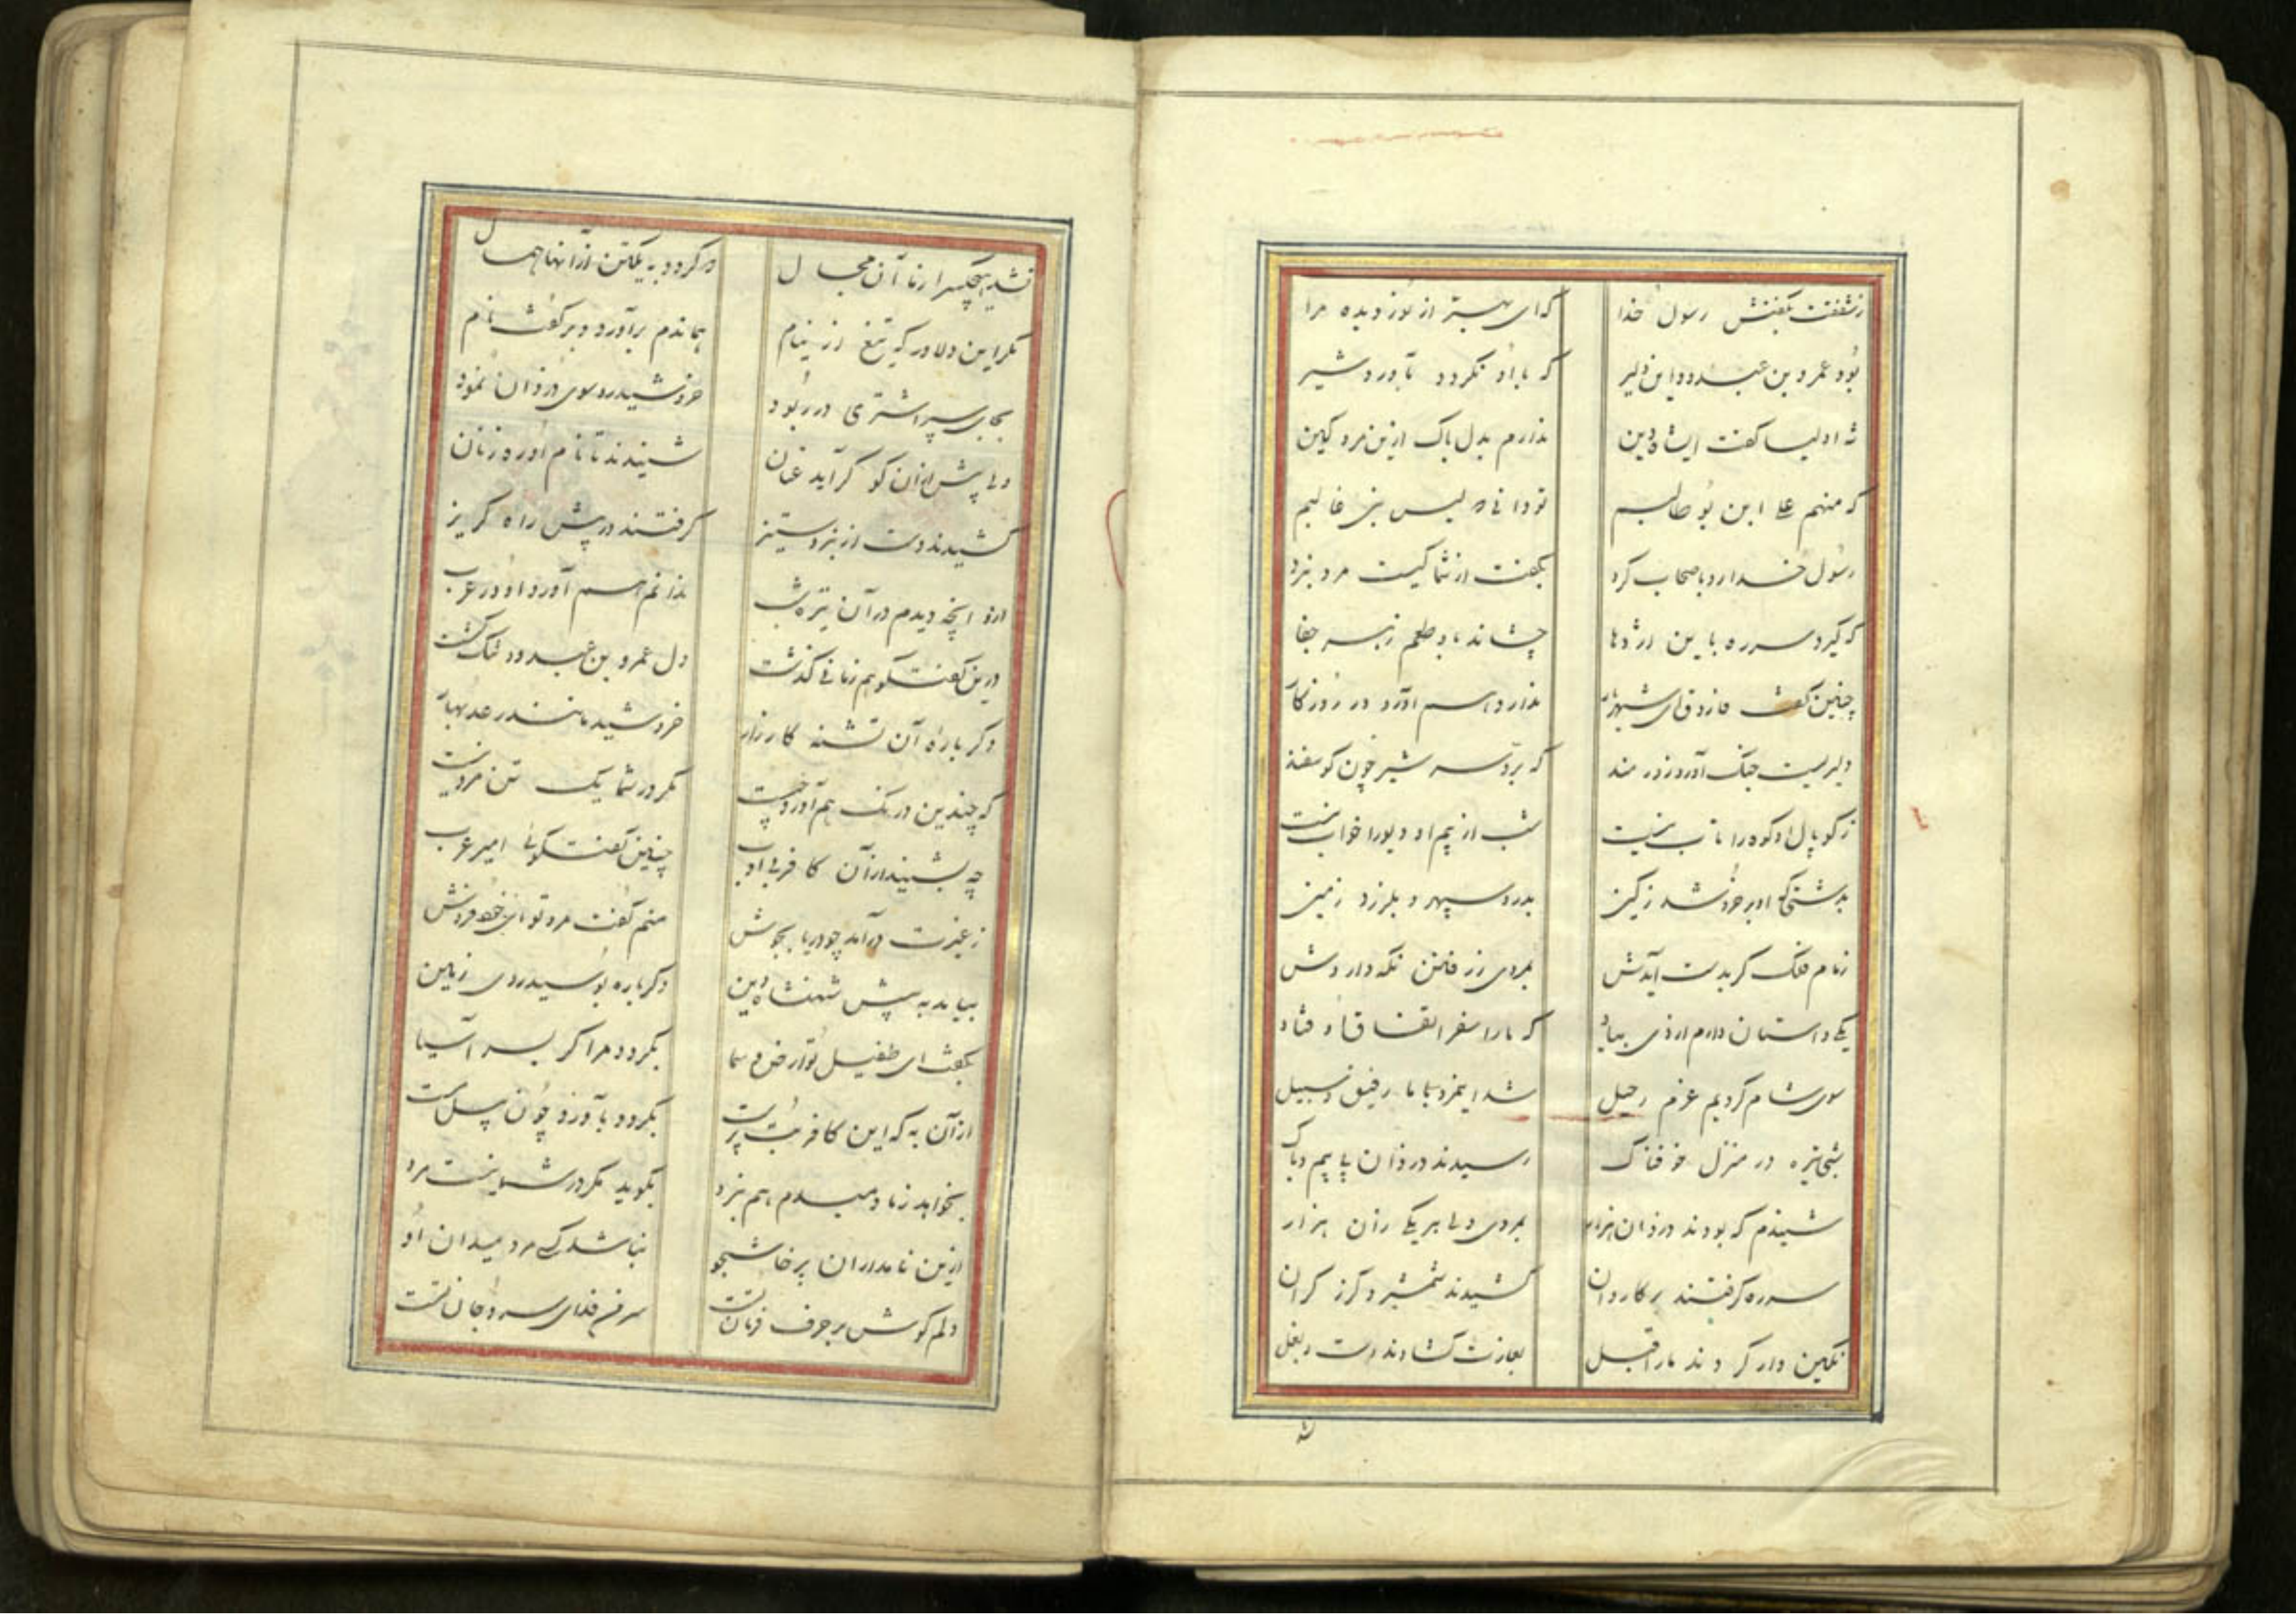 زشفقت بگفتش رسول خدا که‌ای بهتر از نور دیده مرا
بود عمرو بن عبدود این دلیر که با او نکردد بآورد شیر
شه اولیا گفت ایشاه دین ندارم بدل باک ازین مرد کین
که منهم علی ابن بو طالبم تو دانی که لیس بنی غالبم
رسول خدا رو باصحاب کرد بگفت از شما کیست مرد نبرد
که گیرد سر ره باین اژدها چشاند باو طعم زهر جفا
چنین گفت فاروق کای شهریار ندارد هم آورد در روزگار
دلیریست جنگ آور و زورمند که بردسر شیر چون گوسفند
ز کوپال او کوه را تاب نیست شب از بیم او دیو را خواب نیست
بدشتی که او بر خروشد ز کین بدرد سپهر و بلرزد زمین
زمام فلک گر بدست آیدش بمردی ز رفتن نگه داردش
یکی داستان دارم از وی بیاد که ما را سفر اتفاق اوفتاد
سوی شام کردیم عزم رحیل شد اینمرد با ما رفیق سبیل
شبی تیره در منزل خوفناک رسیدند دزدان با بیم و باک
شنیدم که بودند دزدان هزار بمردی ولی هر یکی زان هزار
سر ره گرفتند بر کاروان کشیدند شمشیر و گرز گران
نگین وار کردند ما را قبل بغارت گشادند دست و بغل
نشد هیچکس را ز ما آن مجال که گردد به یکتن از آنها همال
مگر این دلاور که تیغ از نیام هماندم برآورد و بر گفت نام
بجای سپر اشتری در ربود خروشید رو سوی دزدان نمود
ولی پیش ازان کو گراید عنان شنیدند تا نام او رهزنان
کشیدند دست از نبرد و ستیز گرفتند در پیش راه گریز
ازو اینچه دیدم در آن تیره شب ندانم هم آورد او در عرب
درین گفتگو هم زمانی گذشت دل عمرو بن عبدود تنگ گشت
دگر باره آن تشنه کارزار خروشید مانند رعد بهار
که چندین درنگ هم آورد چیست مگر در شما یک تن مرد نیست
چه بشنید ازآن کافر بی ادب چنین گفتگوها امیر عرب
ز غیرت درآمد چو دریا بجوش منم گفت مرد تو
بیامد به پیش شهنشاه دین دگر باره بوسید روی زمین
بگفت ای طفیل تو ارض و سما بگردد مرا گر بسر آسیا
از آن به که این کافر بت پرست بگردد بآورد چون پیل مست
بخواهد ز ما دمبدم هم نبرد بگوید مگر در شما نیست مرد
ازین نامداران پرخاشجو نباشد کسی مرد میدان او
دلم گوش بر حرف فرمان تست سر من فدای سر و جان تست